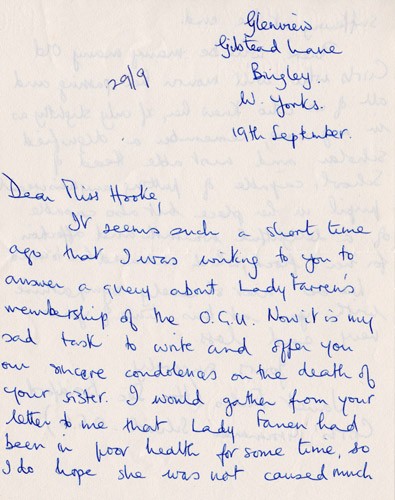 Glenview
Gilstead Lane
Bingley.
W. Yorks.
29/9
19th September.
Dear Miss Hooke,
It seems such a short time
ago that I was writing to you to
answer a query about Lady Farren's
membership of the O.G.U. Now it is my
sad task to write and offer you
our sincere condolences on the death of
your sister. I would gather from your
letter to me that Lady Farren had
been in poor health for some time, so
I do hope she was not caused much